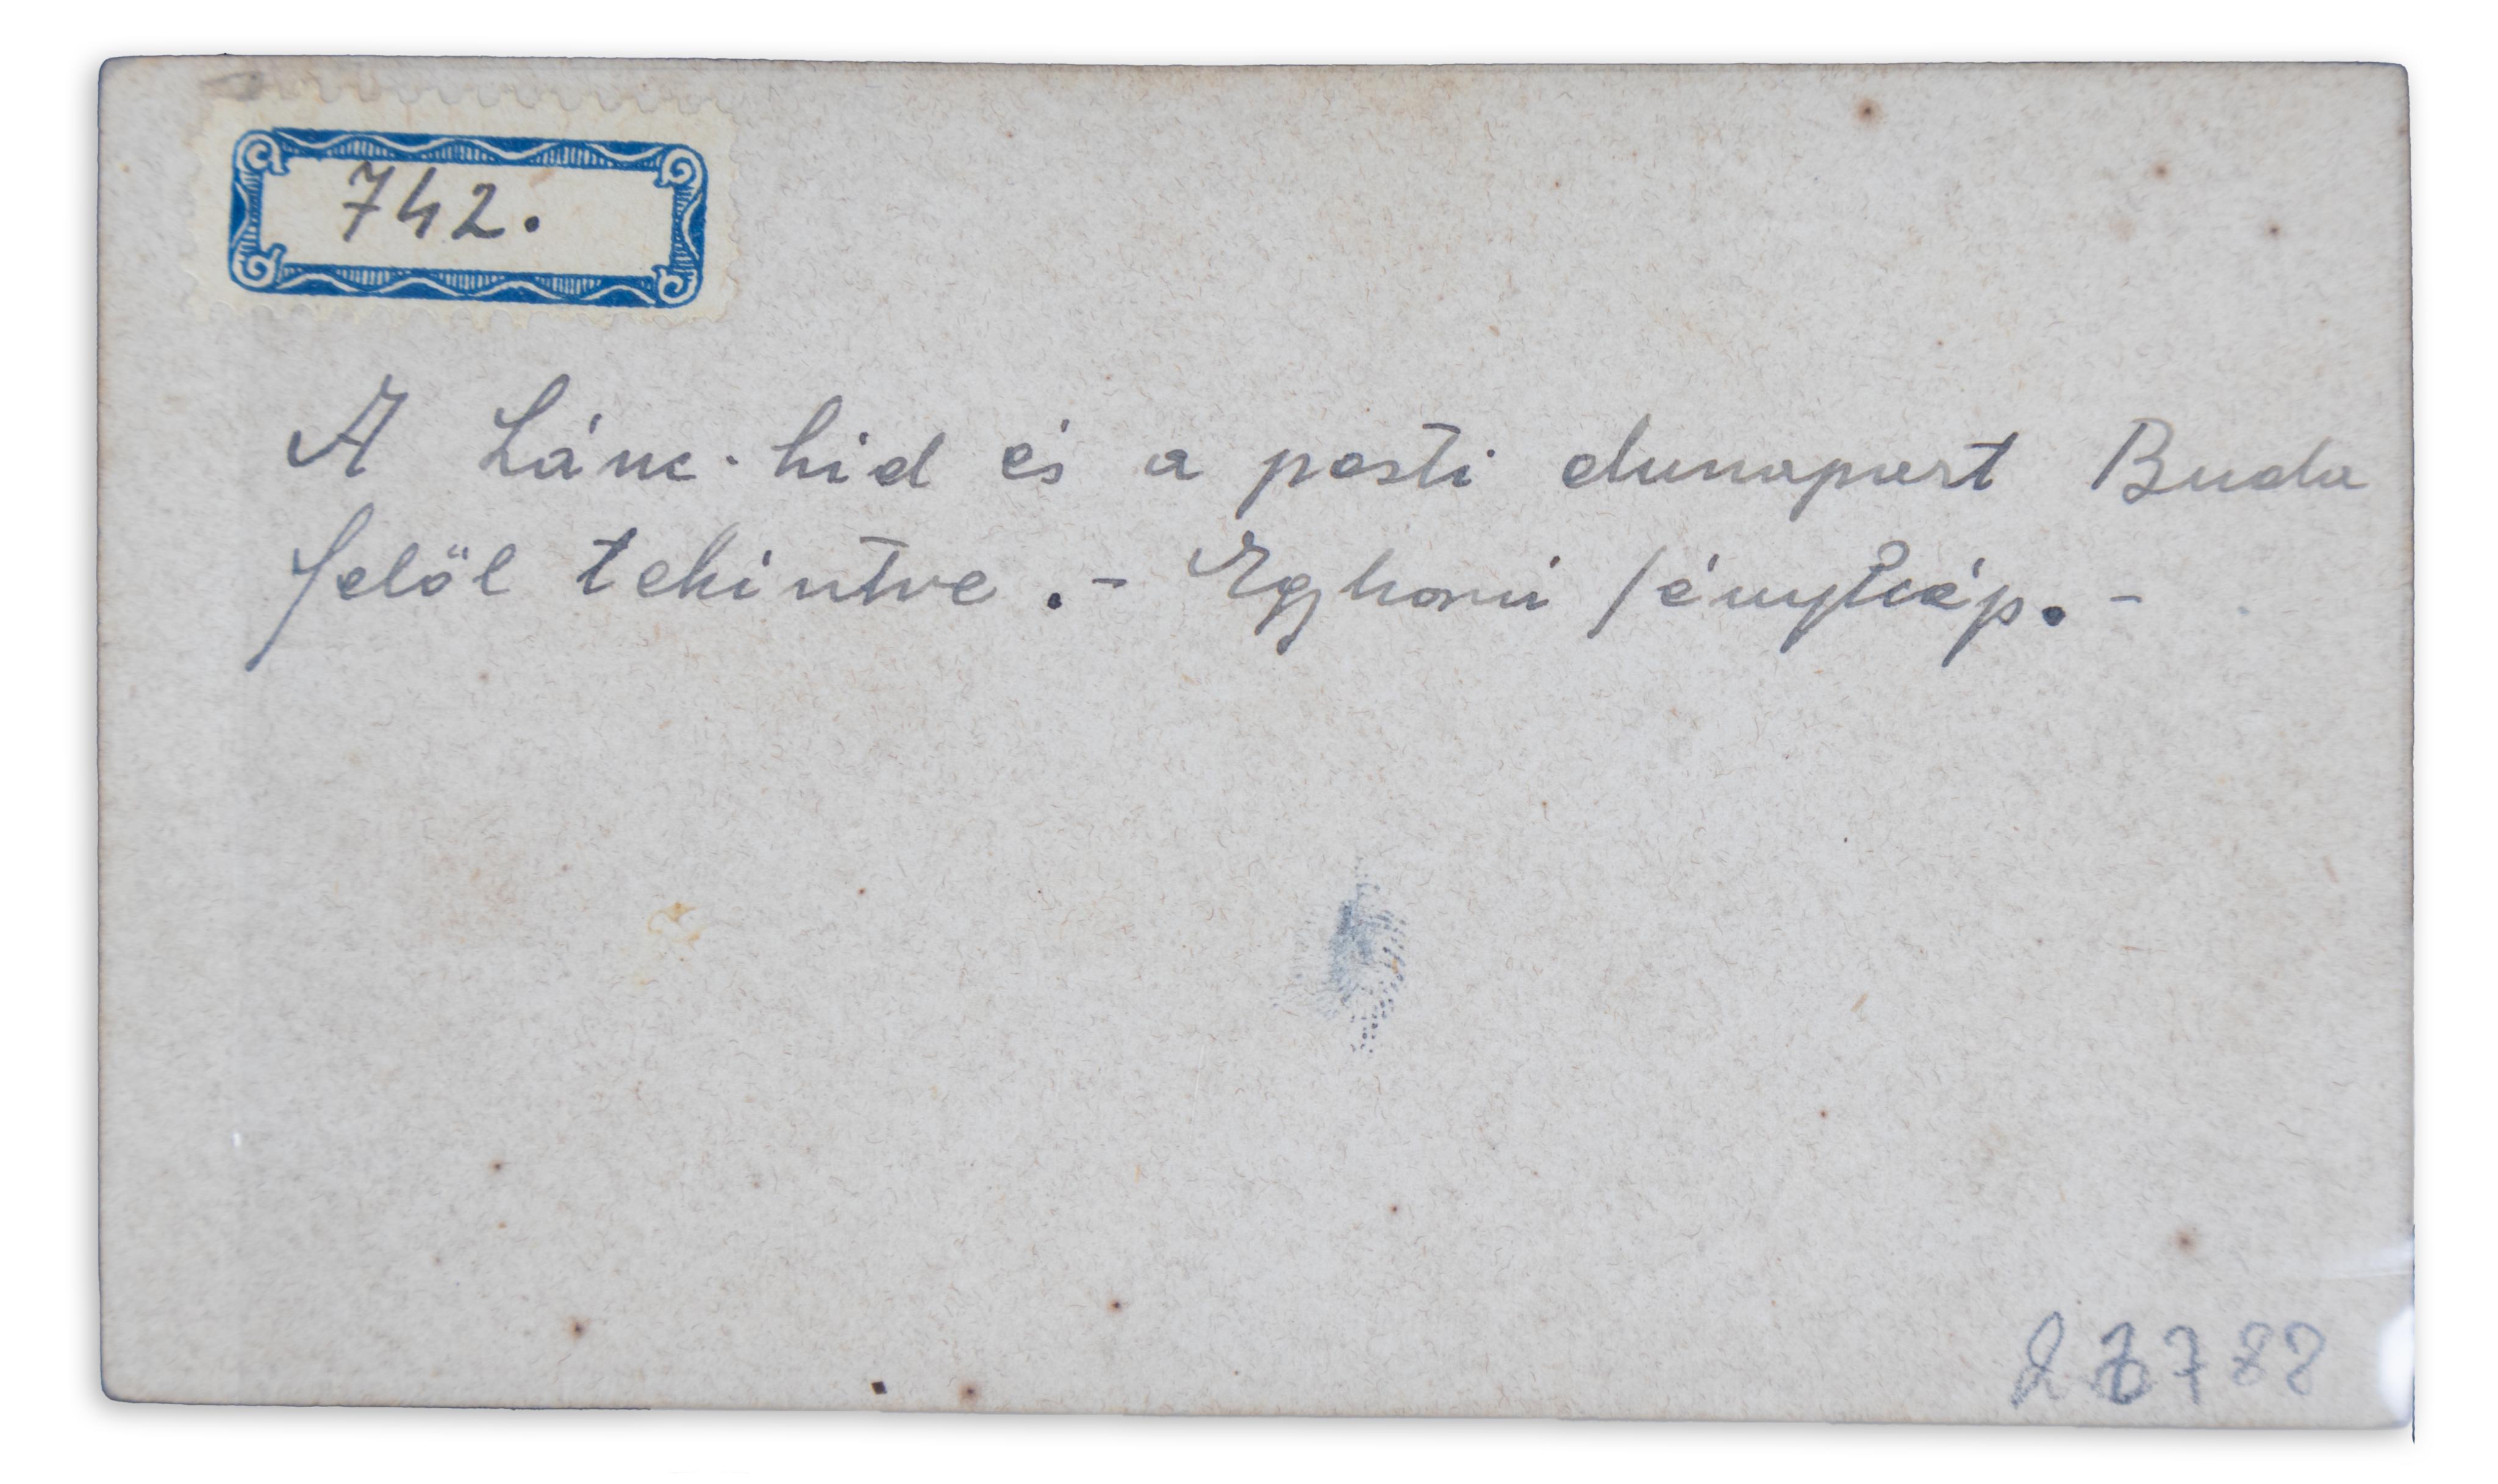 742.
A Lánc-hid és a pesti dunapart Buda
felöl tekintve.- Egykorú fénykép.-